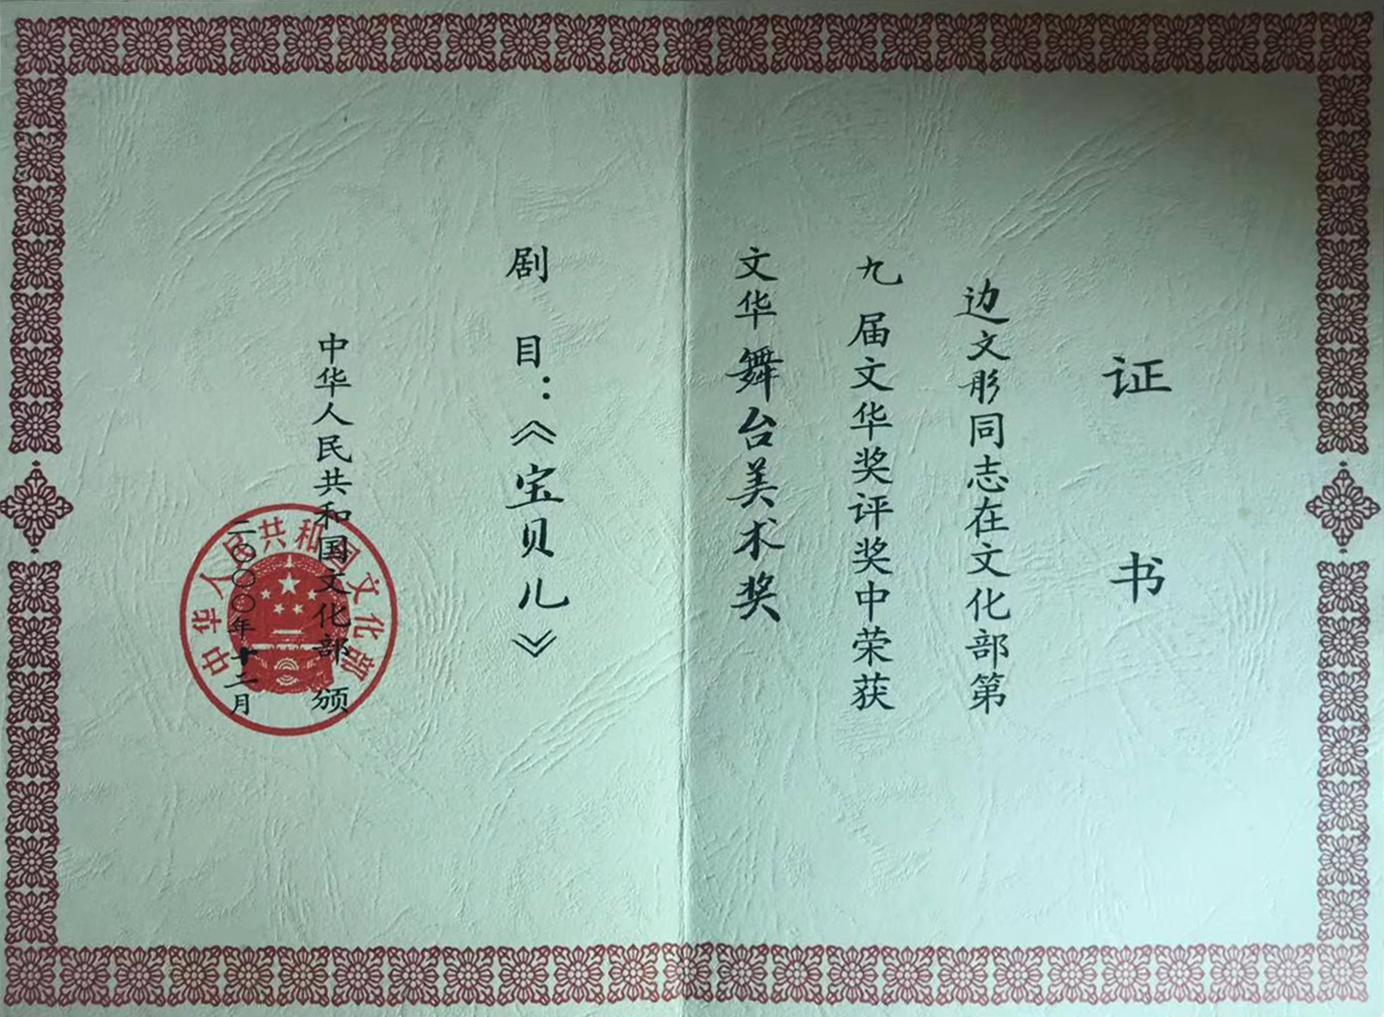 证书
边文彤同志在文化部第
九届文华奖评奖中荣获
文华舞台美术奖
剧目：《宝贝儿》
中华人民共和国文化部 颁
二〇〇〇年十二月
中华人民共和国文化部